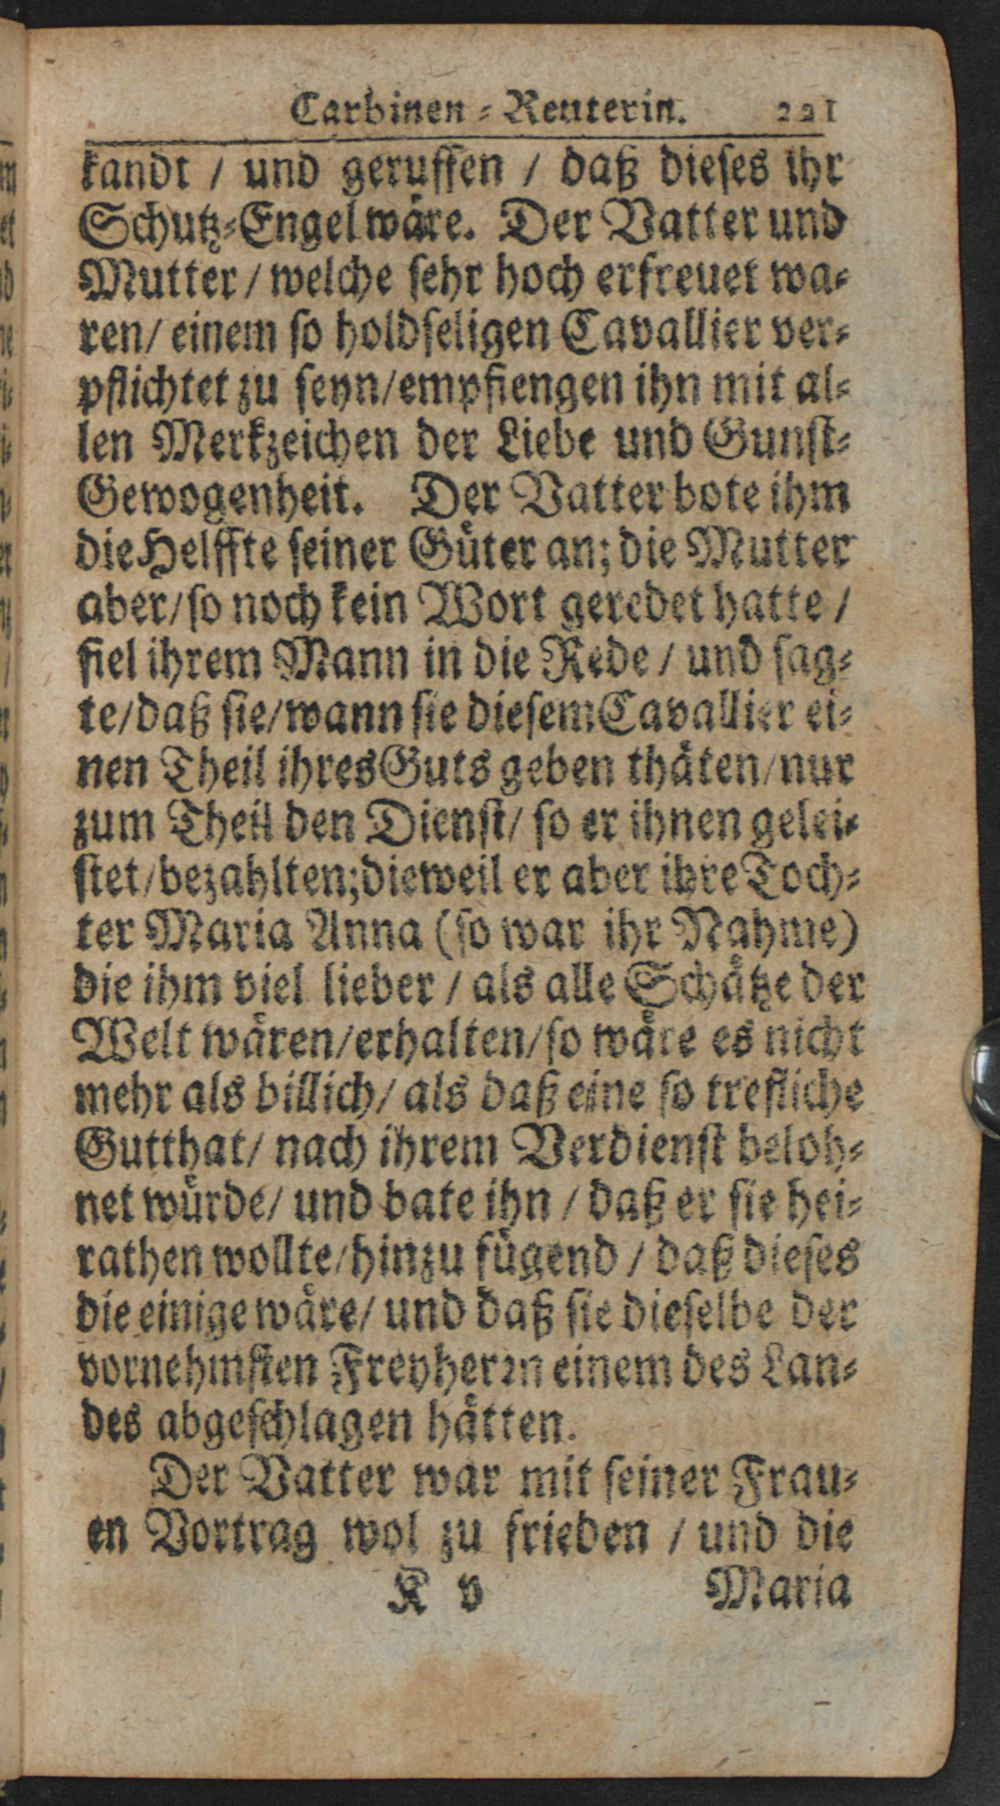 Carbinen-Reuterin. 221
kandt / und geruffen / daß dieses ihr
Schutz-Engel wäre. Der Vatter und
Mutter / welche sehr hoch erfreuet wa-
ren / einem so holdseligen Cavallier ver-
pflichtet zu seyn / empfiengen ihn mit al-
len Merkzeichen der Liebe und Gunst-
Gewogenheit. Der Vatter bote ihm
die Helffte seiner Güter an; die Mutter
aber / so noch kein Wort geredet hatte /
fiel ihrem Mann in die Rede / und sag-
te / daß sie / wann sie diesem Cavallier ei-
nen Theil ihres Guts geben thäten / nur
zum Theil den Dienst / so er ihnen gelei-
stet / bezahlten; dieweil er aber ihre Toch-
ter Maria Anna (so war ihr Nahme)
die ihm viel lieber / als alle Schätze der
Welt wären / erhalten / so wäre es nicht
mehr als billich / als daß eine so trefliche
Gutthat / nach ihrem Verdienst beloh-
net würde / und bate ihn / daß er sie hei-
rathen wollte / hinzu fügend / daß dieses
die einige wäre / und daß sie dieselbe der
vornehmsten Freyherrn einem des Lan-
des abgeschlagen hätten.
Der Vatter war mit seiner Frau-
en Vortrag wol zu frieden / und die
K v Maria